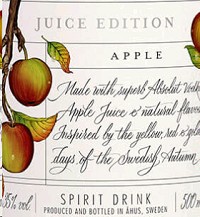 JUICE EDITION
APPLE
Made with superb Absolut Vodk
Apple Juice & natural flavo
Inspired by the yellow, red & gla
days of the Swedish Autumn
35% vol.
SPIRIT DRINK
500 m
PRODUCED AND BOTTLED IN ÅHUS, SWEDEN